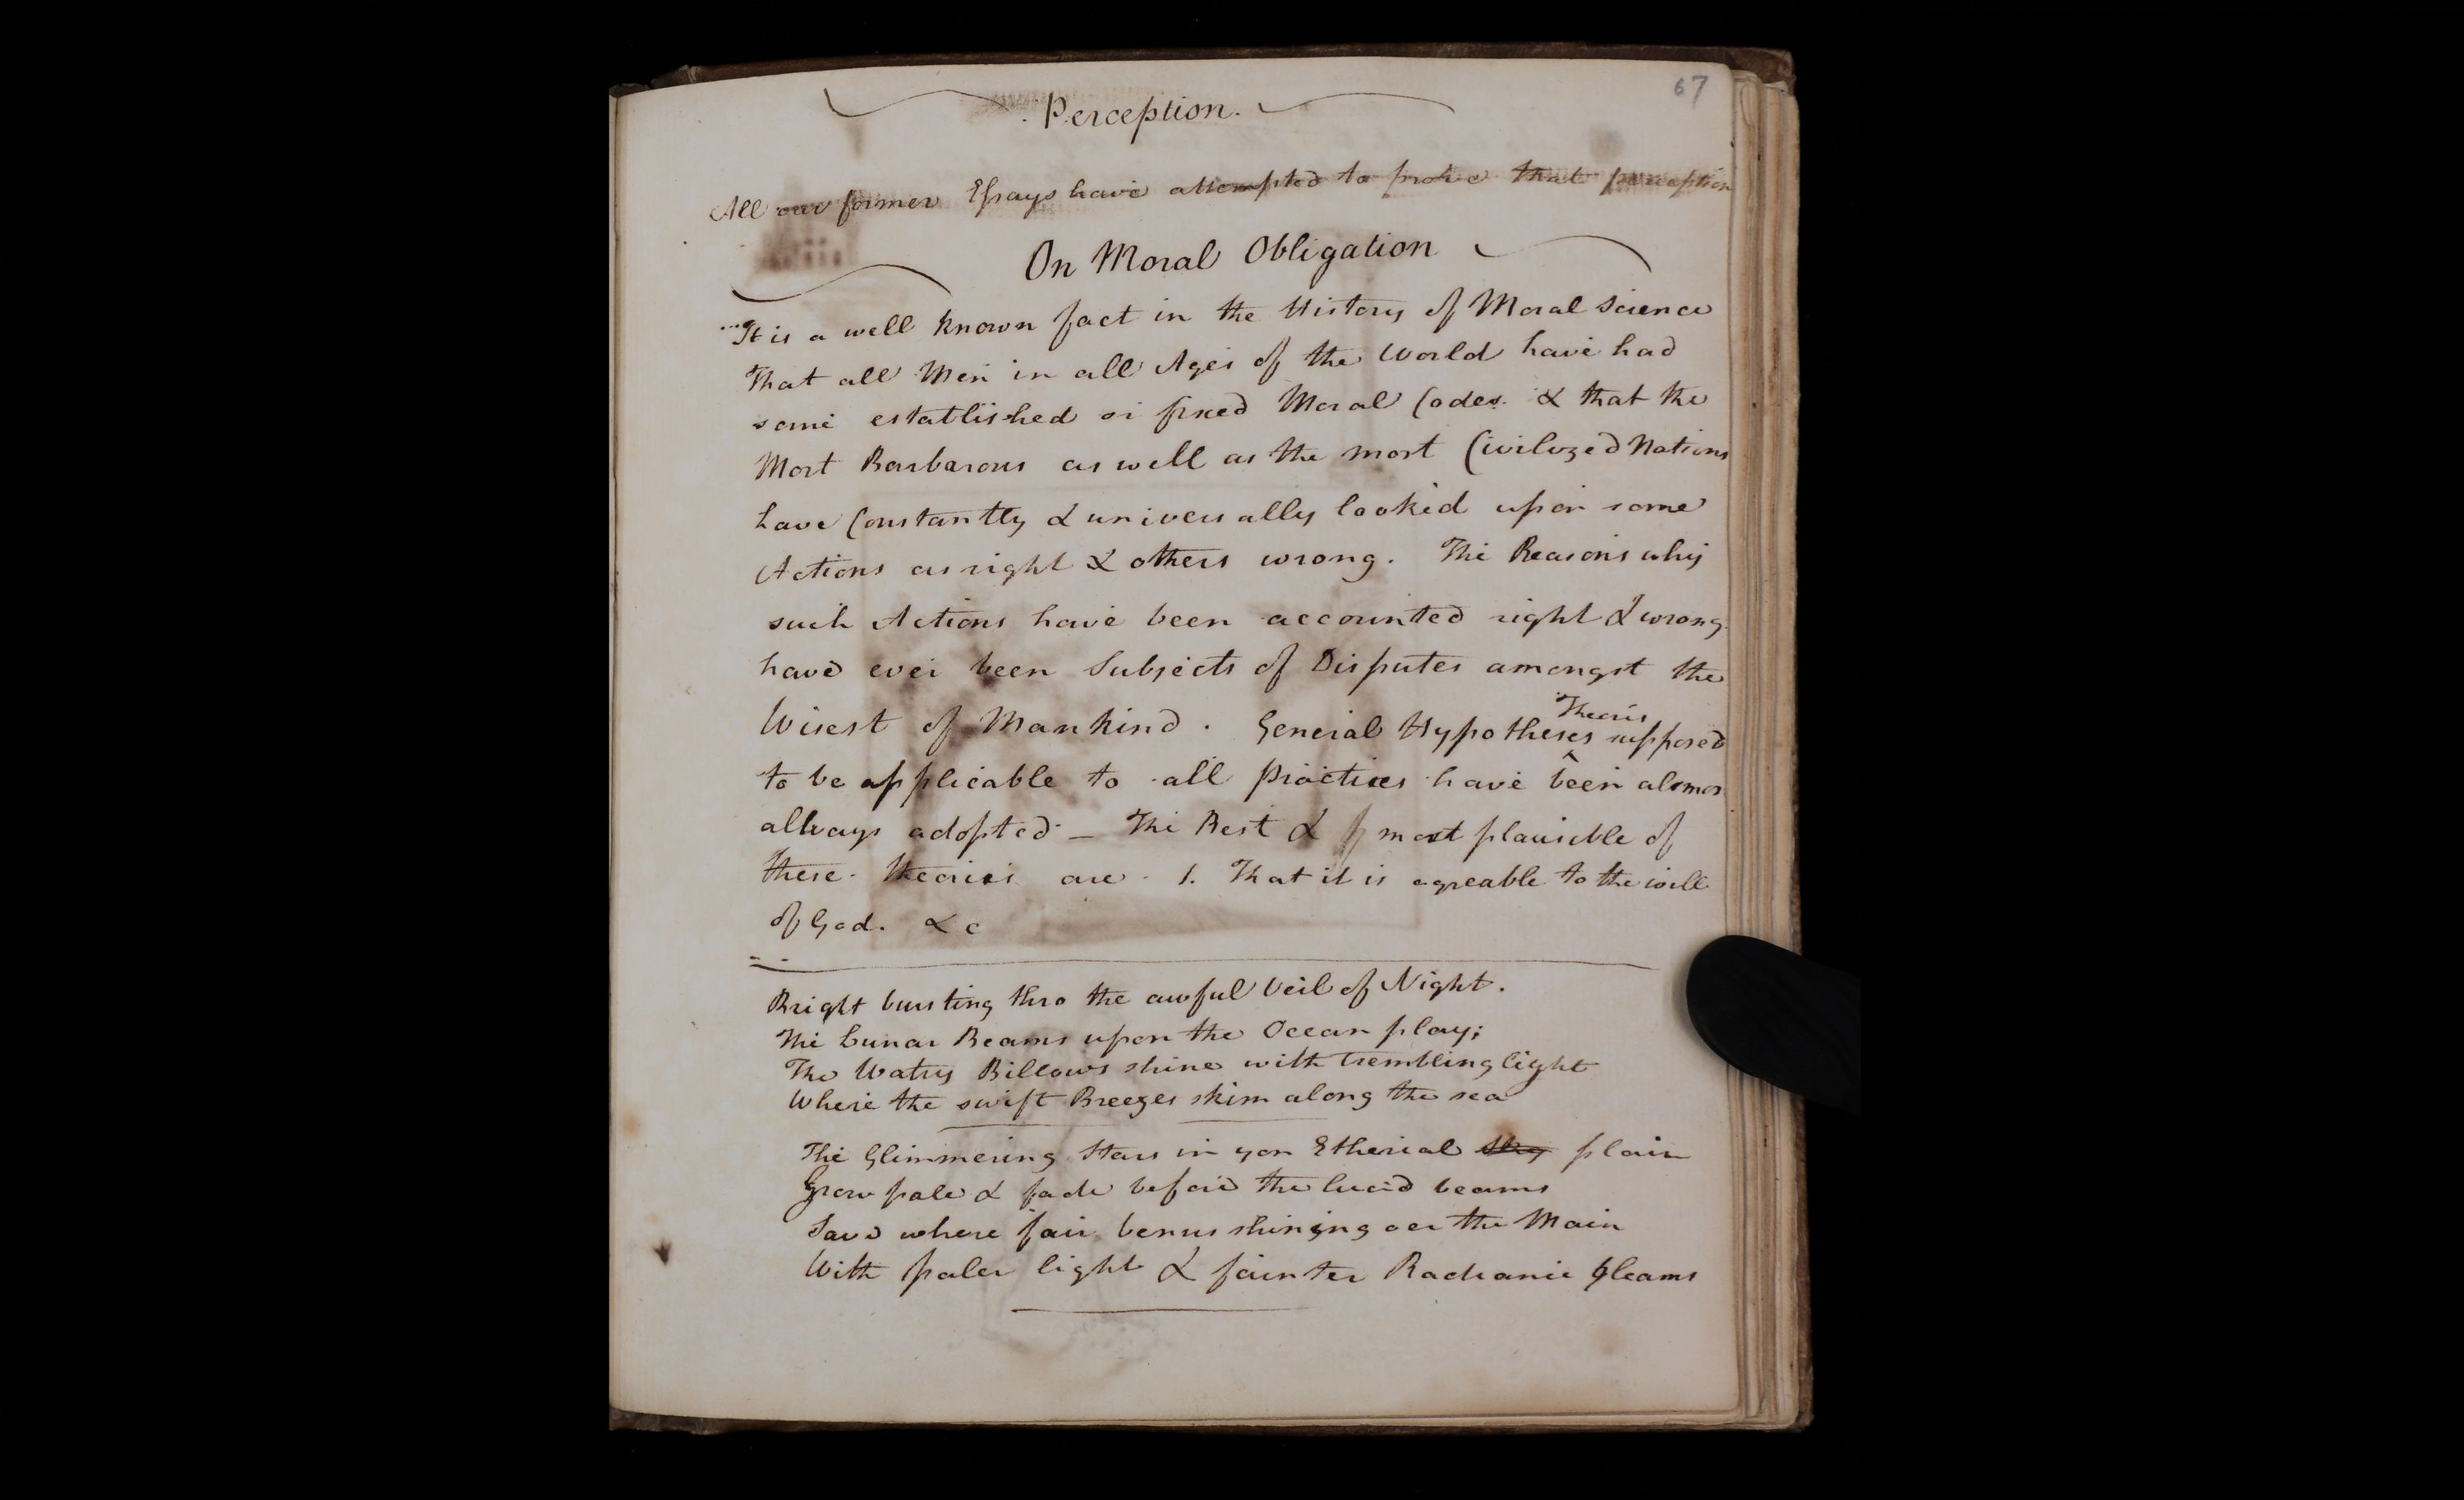 67
Perception.
All our former Essays have attempted to prove that perception
On Moral Obligation
It is a well known fact in the History of Moral Science
That all Men in all Ages of the World have had
some established or fixed Moral Codes. & that the
Most Barbarous as well as the most Civilized Nations
have Constantly & universally looked upon some
Actions as right & others wrong. The Reasons why
such Actions have been accounted right & wrong
have ever been Subjects of Disputes amongst the
Theories
Wisest of Mankind. General Hypotheses supposed
to be applicable to all practices have been almos
allways adopted - The Best & most plausible of
these theories are 1. That it is agreable to the will
of God. &c
Bright bursting thro the awful Veil of Night.
The Lunar Beams upon the Ocean play;
The Watry Billows shine with trembling light
Where the swift Breezes skim along the sea
The Glimmering Stars in yon Etherial sky plain
Grow pale & fade before the lucid beams
Save where fair Venus shining oer the Main
With paler light & fainter Radiance gleams